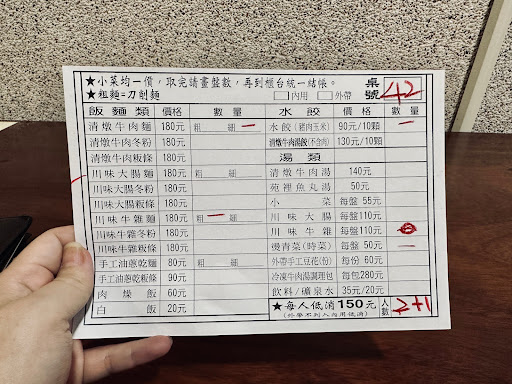 ★小菜均一價，取完請畫盤數，再到櫃台統一結帳。
★粗麵=刀削麵
□內用 □外帶
桌號 42
飯麵類 價格 數量
清燉牛肉麵 180元 粗 細 一
清燉牛肉冬粉 180元
清燉牛肉粄條 180元
川味大腸麵 180元 粗 細
川味大腸冬粉 180元
川味大腸粄條 180元
川味牛雜麵 180元 粗 一 細
川味牛雜冬粉 180元
川味牛雜粄條 180元
手工油蔥乾麵 80元 粗 細
手工油蔥乾粄條 90元
肉燥飯 60元
白飯 20元
水餃 價格 數量
水餃(豬肉玉米) 90元/10顆 一
清燉牛肉湯餃(不含肉) 130元/10顆
湯類
清燉牛肉湯 140元
苑裡魚丸湯 50元
小菜 每盤 55元
川味大腸 每盤110元
川味牛雜 每盤110元
燙青菜(時菜) 每盤 50元 一
外帶手工豆花(份) 每份 60元
冷凍牛肉湯調理包 每包280元
飲料/礦泉水 35元/20元
★每人低消150元
(外帶不列入內用低消)
人數 2+1